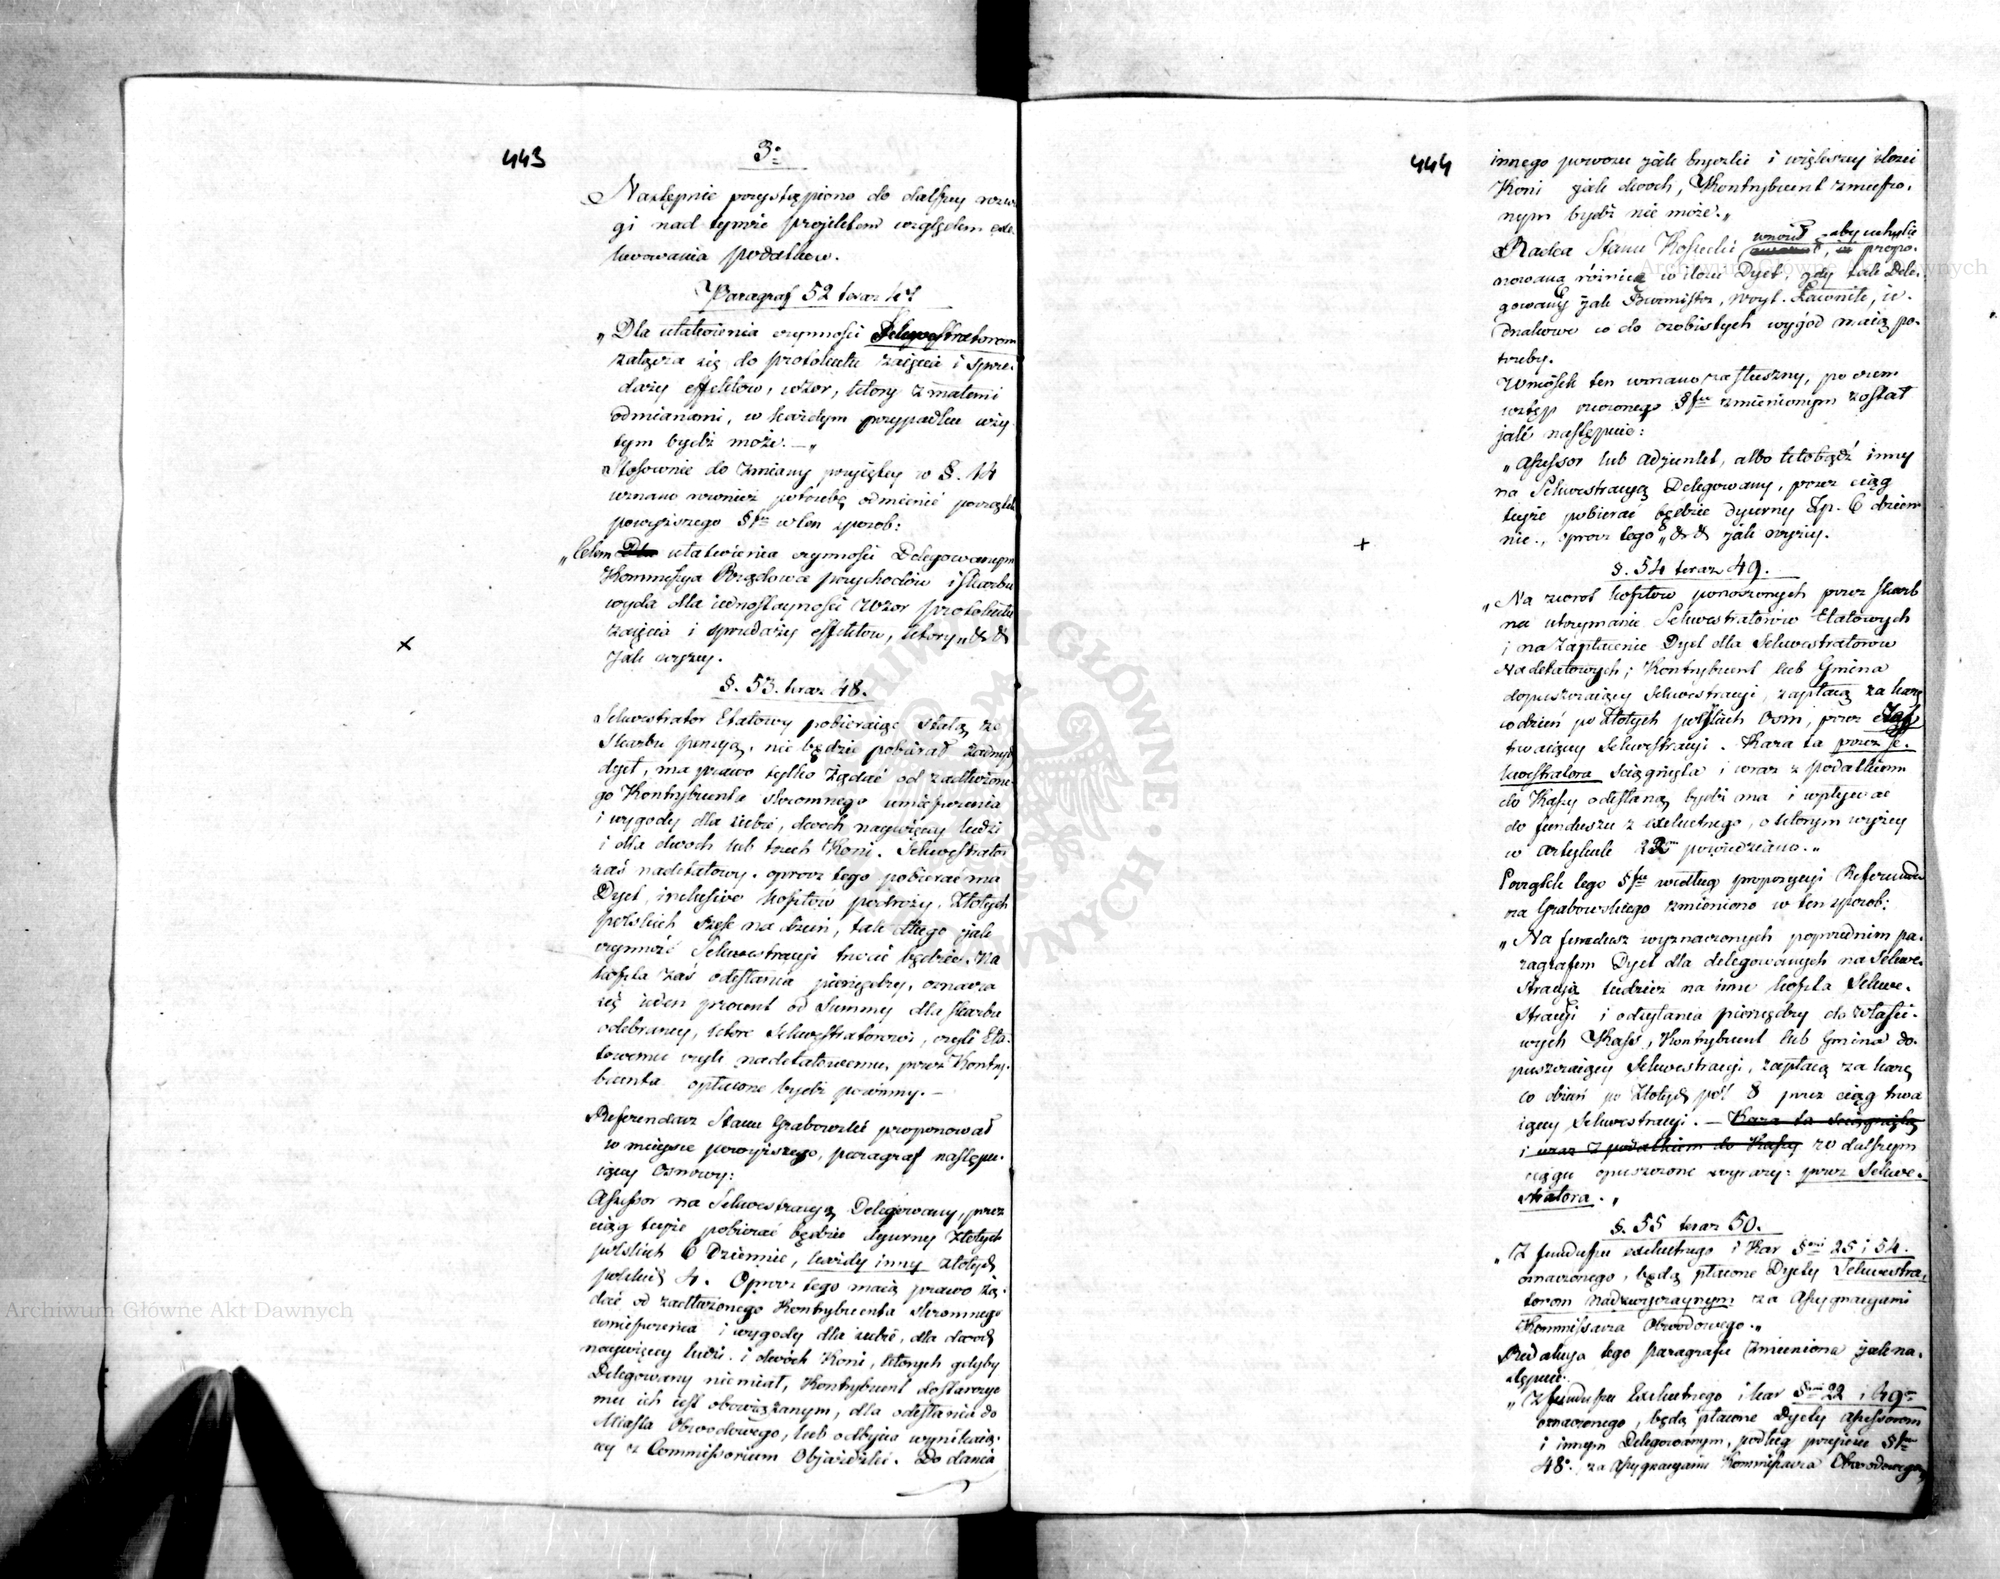 443
3o
Następnie przystąpiono do dalszey rozwa-
gi nad tymże projektem względem exe-
kwowania podatków.
Paragraf 52 teraz 47
„Dla ułatwienia czynności Sekwestratorom
załącza się do protokułu zaięcia i sprze-
daży effektów, wzor, który z małemi
odmianami, w każdym przypadku uży-
tym bydź może. — „
Stosownie do zmiany przyiętey w §. 44
uznano również potrzebę odmienić początek
powyższego §fu w ten sposob:
„Celem Dla ułatwienia czynności Delegowanym
Kommissya Rządowa przychodów i Skarbu
wyda dla iednostayności wzor protokułu
zaięcia i sprzedaży effektów, który„ &c &c
jak wyżey.
§. 53. teraz 48.
Sekwestrator Etatowy pobieraiąc stałą ze
Skarbu pensyą, nie będzie pobierał żadnych
dyet, ma prawo tylko żądać od zadłużone-
go Kontrybuenta skromnego umieszczenia
i wygody dla siebie, dwoch naywięcey ludzi
i dla dwoch lub trzech Koni. Sekwestrator
zaś nadetatowy, oprocz tego pobierać ma
Dyet, inclusive kosztów podroży, Złotych
polskich sześć na dzień, tak długo jak
czynność Sekwestracyi trwać będzie. Na
koszta zaś odesłania pieniędzy, oznacza
się ieden procent od Summy dla Skarbu
odebraney, które Sekwestratorowi, czyli Eta-
towemu czyli nadetatowemu, przez Kontry-
buenta opłacone bydź powinny. —
Referendarz Stanu Grabowski proponował
w mieysce powyższego, paragraf następu-
iącey Osnowy:
Assessor na Sekwestracyą Delegowany, przez
ciąg teyże pobierać będzie dyurny Złotych
polskich 6 Dziennie, każdy inny złotych
polskich 4. Oprocz tego maią prawo żą-
dać od zadłużonego Kontrybuenta skromnego
umieszczenia i wygody dla siebie, dla dwoch
naywięcey ludzi i dwóch Koni, których gdyby
Delegowany niemiał, Kontrybuent dostarczyć
mu ich iest obowiązanym, dla odesłania do
Miasta Obwodowego, lub odbycia wynikaią-
cey z Commissorium Objażdżki. Do dania
444
innego powozu jak bryczki i większey ilości
Koni jak dwoch, Kontrybuent zmuszo-
nym bydź nie może.„
Radca Stanu Kossecki wniósł, aby uchylić propo-
nowaną różnicę w ilości Dyet, gdy tak Dele-
gowany jak Burmistrz, Woyt, Ławnik, ie-
dnakowe co do osobistych wygód maią po-
trzeby.
Wniosek ten uznano za słuszny, po czem
wstęp rzeczonego §fu zmienionym został
jak następuie:
„Assessor lub Adjunkt, albo ktobądź inny
na Sekwestracyą Delegowany, przez ciąg
teyże pobierać będzie dyurny Złp. 6 dzien-
nie, oprocz tego„ &c &c jak wyżey.
§. 54 teraz 49.
„Na zwrot kosztów ponoszonych przez Skarb
na utrzymanie Sekwestratorów Etatowych
i na zapłacenie Dyet dla Sekwestratorów
Nadetatowych; Kontrybuent lub Gmina
dopuszczaiący Sekwestracyi, zapłacą za karę
codzień po Złotych polskich Osm, przez ciąg
trwaiącey Sekwestracyi. Kara ta przez Se-
kwestratora ściągnięta i wraz z podatkiem
do Kassy odesłaną bydź ma i wpływać
do funduszu exekucnego, o którym wyżey
w artykule 22m powiedziano.„
Początek tego §fu według propozycyi Referenda-
rza Grabowskiego zmieniono w ten sposob:
„Na fundusz wyznaczonych poprzednim pa-
ragrafem Dyet dla delegowanych na Sekwe-
stracyą tudzież na inne koszta Sekwe-
stracyi i odesłania pieniędzy do właści-
wych Kass, Kontrybuent lub Gmina do-
puszczaiący Sekwestracyi, zapłacą za karę
co dzień po Złotych pol. 8 przez ciąg trwa-
iącey Sekwestracyi. — Kara ta ściągniętą
i wraz z podatkiem do Kassy w dalszym
ciągu opuszczone wyrazy: przez Sekwe-
stratora.„
§. 55 teraz 50.
„Z funduszu exekucnego i Kar §mi 25 i 54.
oznaczonego, będą płacone Dyety Sekwestra-
torom Nadzwyczaynym za Assygnacyami
Kommissarza Obwodowego.„
Redakcya tego paragrafu zmieniona jak na-
stępuie:
„Z funduszu Exekucnego i kar §mi 22 i 49o
oznaczonego, będą płacone Dyety Assessorom
i innym Delegowanym, podług przepisu §fu
48o. za Assygnacyami Kommissarza Obwodowego„
Archiwum Główne Akt Dawnych